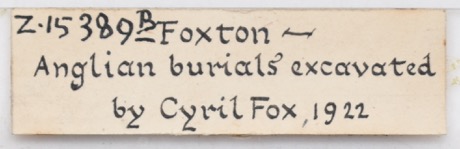 Z.15389B Foxton —
Anglian burials excavated
by Cyril Fox, 1922